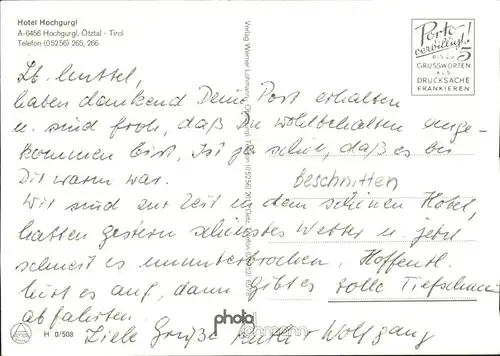 Hotel Hochgurgl
A-6456 Hochgurgl, Ötztal - Tirol
Telefon (05256) 265, 266
Porto
verbilligt!
BIS ZU 5
GRUSSWORTEN
ALS
DRUCKSACHE
FRANKIEREN
Verlag Werner Lohmann, Obergurgl
Lb. Muttel,
haben dankend Deine Post erhalten
u. sind froh, daß Du wohlbehalten ange-
kommen bist. Ist ja schön, daß es bei
Dir warm war.
Beschnitten
Wir sind zur Zeit in dem schönen Hotel,
hatten gestern schönstes Wetter u. jetzt
schneit es ununterbrochen. Hoffentl.
hört es auf, dann gibt es tolle Tiefschnee
abfahrten.
Liebe Grüße Wolfgang
H 0/508
photo
lohmann